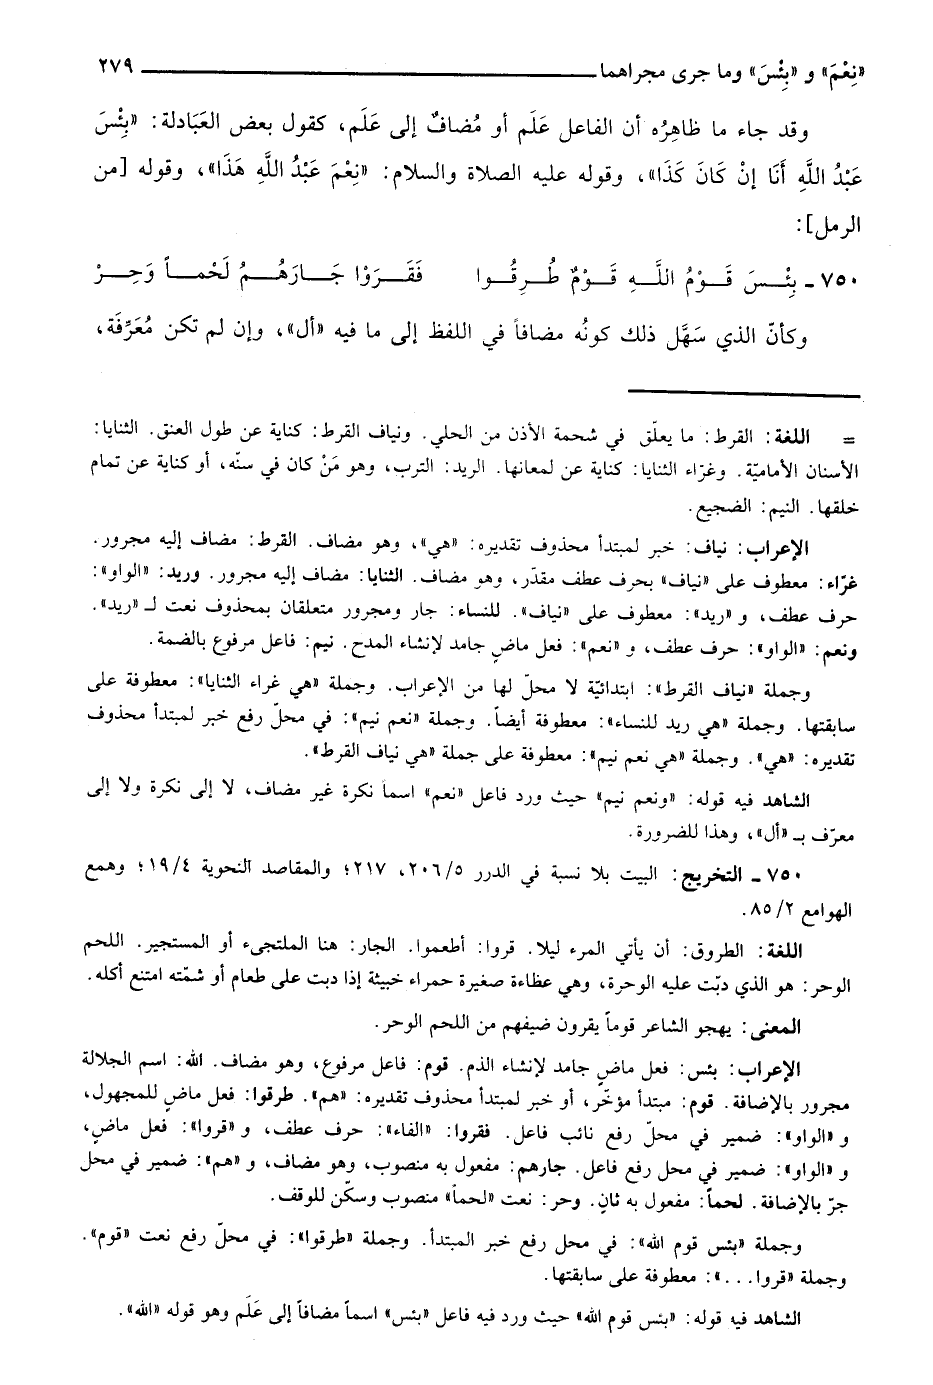 «نِعْمَ» و «بِئْسَ» وما جرى مجراهما ٢٧٩
وقد جاء ما ظاهِرُه أن الفاعل عَلَم أو مُضافٌ إلى عَلَم، كقول بعض العَبَادلة: «بِئْسَ
عَبْدُ اللَّهِ أَنَا إنْ كَانَ كَذَا»، وقوله عليه الصلاة والسلام: «نِعْمَ عَبْدُ اللَّهِ هَذَا»، وقوله [من
الرمل]:
٧٥٠ ـ بِئْـسَ قَـوْمُ اللَّـهِ قَـوْمٌ طُـرِقُـوا فَقَـرَوْا جَـارَهُـمُ لَحْمـاً وَحِـرْ
وكأنّ الذي سَهَّل ذلك كونُه مضافاً في اللفظ إلى ما فيه «أل»، وإن لم تكن مُعَرِّفَة،
= اللغة: القرط: ما يعلّق في شحمة الأذن من الحلي. ونياف القرط: كناية عن طول العنق. الثنايا:
الأسنان الأماميّة. وغرّاء الثنايا: كناية عن لمعانها. الريد: الترب، وهو مَنْ كان في سنّه، أو كناية عن تمام
خلقها. النيم: الضجيع.
الإعراب: نياف: خبر لمبتدأ محذوف تقديره: «هي»، وهو مضاف. القرط: مضاف إليه مجرور.
غرّاء: معطوف على «نياف» بحرف عطف مقدّر، وهو مضاف. الثنايا: مضاف إليه مجرور. وريد: «الواو»:
حرف عطف، و «ريد»: معطوف على «نياف». للنساء: جار ومجرور متعلقان بمحذوف نعت لـ «ريد».
ونعم: «الواو»: حرف عطف، و «نعم»: فعل ماضٍ جامد لإنشاء المدح. نيم: فاعل مرفوع بالضمة.
وجملة «نياف القرط»: ابتدائيّة لا محلّ لها من الإعراب. وجملة «هي غراء الثنايا»: معطوفة على
سابقتها. وجملة «هي ريد للنساء»: معطوفة أيضاً. وجملة «نعم نيم»: في محلّ رفع خبر لمبتدأ محذوف
تقديره: «هي». وجملة «هي نعم نيم»: معطوفة على جملة «هي نياف القرط».
الشاهد فيه قوله: «ونعم نيم» حيث ورد فاعل «نعم» اسماً نكرة غير مضاف، لا إلى نكرة ولا إلى
معرّف بـ «أل»، وهذا للضرورة.
٧٥٠ ـ التخريج: البيت بلا نسبة في الدرر ٢٠٦/٥، ٢١٧؛ والمقاصد النحوية ١٩/٤؛ وهمع
الهوامع ٨٥/٢.
اللغة: الطروق: أن يأتي المرء ليلا. قروا: أطعموا. الجار: هنا الملتجىء أو المستجير. اللحم
الوحر: هو الذي دبّت عليه الوحرة، وهي عظاءة صغيرة حمراء خبيثة إذا دبت على طعام أو شمّته امتنع أكله.
المعنى: يهجو الشاعر قوماً يقرون ضيفهم من اللحم الوحر.
الإعراب: بئس: فعل ماضٍ جامد لإنشاء الذم. قوم: فاعل مرفوع، وهو مضاف. الله: اسم الجلالة
مجرور بالإضافة. قوم: مبتدأ مؤخّر، أو خبر لمبتدأ محذوف تقديره: «هم». طرقوا: فعل ماضٍ للمجهول،
و «الواو»: ضمير في محلّ رفع نائب فاعل. فقروا: «الفاء»: حرف عطف، و «قروا»: فعل ماضٍ،
و «الواو»: ضمير في محل رفع فاعل. جارهم: مفعول به منصوب، وهو مضاف، و «هم»: ضمير في محل
جرّ بالإضافة. لحماً: مفعول به ثانٍ. وحر: نعت «لحماً» منصوب وسكّن للوقف.
وجملة «بئس قوم الله»: في محل رفع خبر المبتدأ. وجملة «طرقوا»: في محلّ رفع نعت «قوم».
وجملة «قروا...»: معطوفة على سابقتها.
الشاهد فيه قوله: «بئس قوم الله» حيث ورد فيه فاعل «بئس» اسماً مضافاً إلى عَلَم وهو قوله «الله».